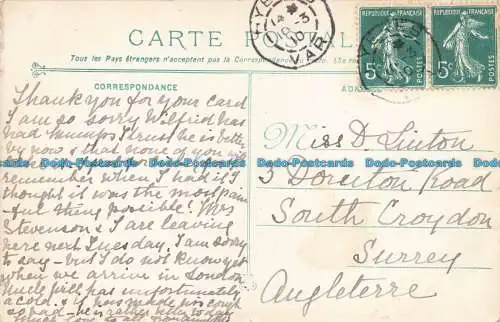 CARTE
Tous les Pays étrangers n'acceptent pas la Correspondance
CORRESPONDANCE
REPUBLIQUE FRANÇAISE
5c
POSTES
REPUBLIQUE FRANÇAISE
5c
POSTES
Thank you for your card
I am so sorry Wilfrid has
had mumps I trust he is better
by now & that none of you
remember when I had it I
thought it was the most pain
-ful thing possible! Mrs
Stevenson & I are leaving
here next Tuesday. I am sorry
to say - but I do not know yet
when we arrive in London
Uncle Will has unfortunately
a cold & it has made his cough
so bad - he is rather better today
Much love to all
Miss D. Linton
3 Road
South Croydon
Surrey
Angleterre
Dodo-Postcards Dodo-Postcards Dodo-Postcards Dodo-Postcards